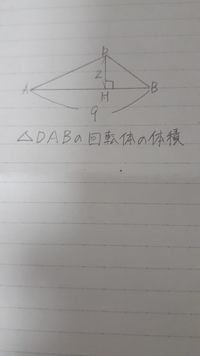 D
2
A
H
B
9
△DABの回転体の体積